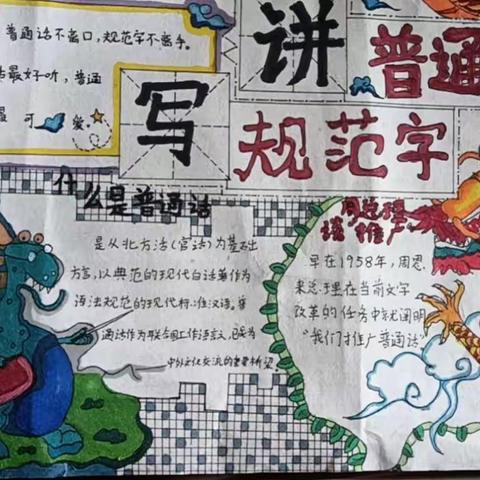 普通话不离口，规范字不离手。
最好听，普通
最可爱
讲普通
写规范字
什么是普通话
是以北方话(官话)为基础
方言，以典范的现代白话著作为
语法规范的现代标准汉语。普
通话作为联合国工作语言之一，已成为
中外文化交流的重要桥梁
周总理
谈“推广”
早在1958年，周恩
来总理在当前文字
改革的任务中就阐明
“我们推广普通话”